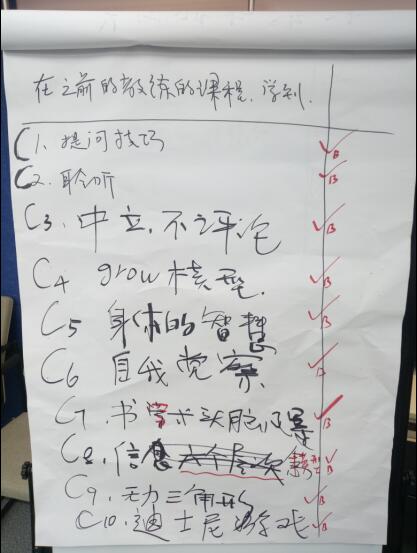 在之前的教练的课程,学到.
C1. 提问技巧 B
C2. 聆听 B
C3. 中立,不评论 B
C4 grow模型. B
C5 身体的智慧 B
C6 自我觉察 B
C7. 书学术头脑 B
C8. 信息 B
C9. 无力三角形 B
C10. 迪士尼游戏 B